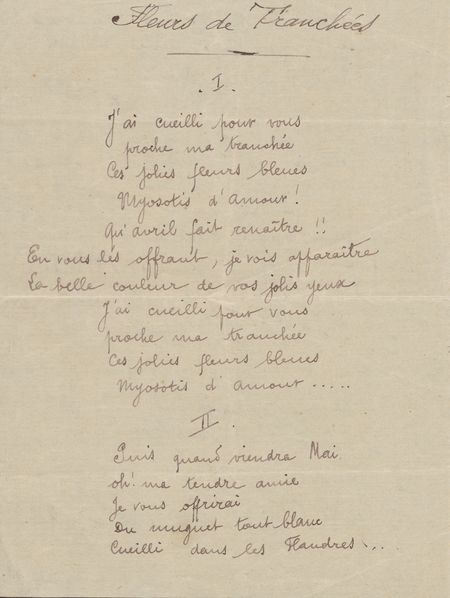 Fleurs de Tranchées
. I .
J'ai cueilli pour vous
proche ma tranchée
Ces jolies fleurs bleues
Myosotis d'amour !
Qu'avril fait renaître !!
En vous les offrant, je vois apparaître
La belle couleur de vos jolis yeux
J'ai cueilli pour vous
proche ma tranchée
Ces jolies fleurs bleues
Myosotis d'amour .....
II .
Puis quand viendra Mai
oh! ma tendre amie
Je vous offrirai
Du muguet tout blanc
Cueilli dans les Flandres ....